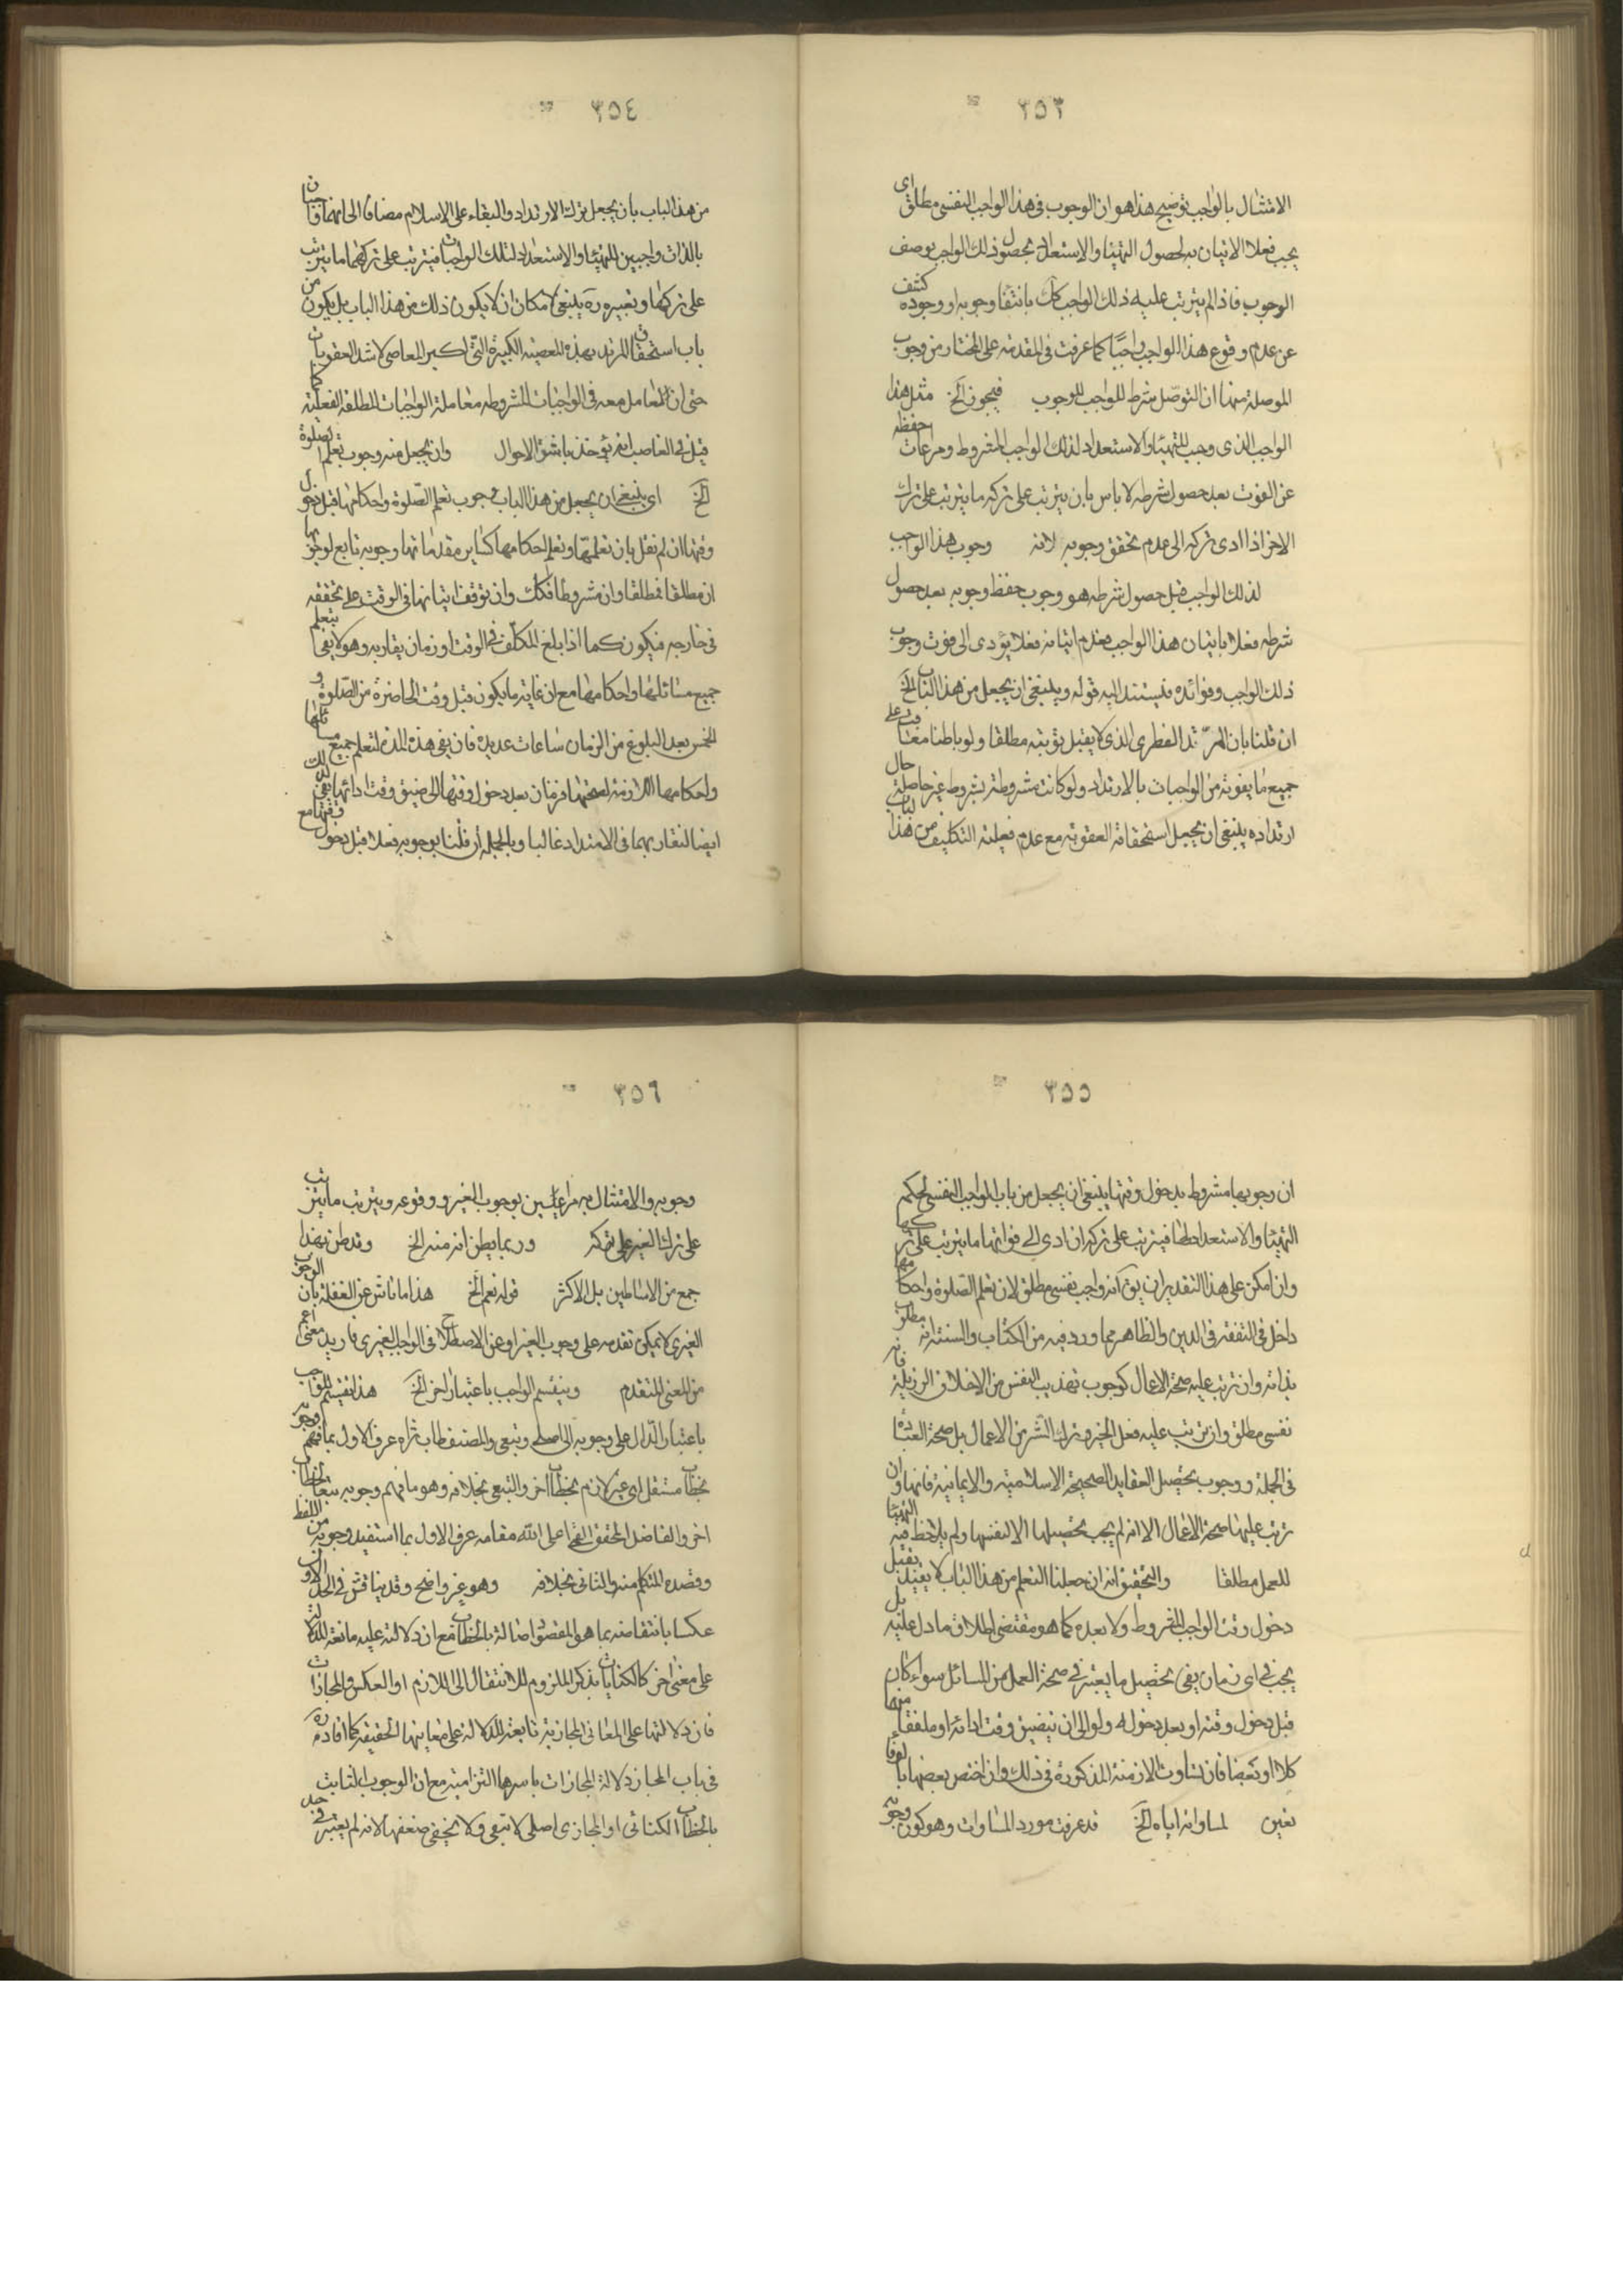 ٣٥٣
الامتثال بالواجب توضيح هذا هو ان الوجوب في هذا الواجب النفسي مطلق اى
يجب فعلا الاتيان به لحصول التهيئا والاستعداد لحصول ذلك الواجب بوصف
الوجوب فاذا لم يترتب عليه ذلك الواجب كك بانتفا وجوبه او وجوده كشف
عن عدم وقوع هذا الواجب واجبًا كما عرفت في المقدمة على المختار من وجوب
الموصلة منها ان التوصّل شرط للواجب للوجوب فيجوز الخ مثل هذا
الواجب الذى وجب للتهيئا والاستعداد لذلك الواجب المشروط ومراعات حفظه
عن الفوت بعد حصول شرطه لا باس بان يترتب على تركه ما يترتب على ترك
الاخر اذا ادى تركه الى عدم تحقق وجوبه لانه وجوب هذا الواجب
لذلك الواجب قبل حصول شرطه هو وجوب حفظ وجوبه بعد حصول
شرطه فعلا باتيان هذا الواجب فعدم اتيانه فعلا يؤدى الى فوت وجوب
ذلك الواجب وفوائده فيستند اليه قوله وينبغى ان يجعل من هذا الباب الخ
ان قلنا بان المرتد الفطرى الذى لا يقبل توبته مطلقا ولو باطنا معاقب على
جميع ما يفوته من الواجبات بالارتداد ولو كانت مشروطة بشروط غير حاصلة حال
ارتداده ينبغى ان يجعل استحقاقه العقوبة مع عدم فعلية التكليف من هذا الباب
٣٥٤
من هذا الباب بان يجعل ترك الارتداد والبقاء على الاسلام مضافا الى انهما واجبان
بالذات واجبين للتهيئا والاستعداد لتلك الواجبات فيترتب على تركهما ما يترتب
على تركها وتعبيره ره بينبغى لامكان ان لا يكون ذلك من هذا الباب بل يكون من
باب استحقاق المرتد بهذه المعصية الكبيرة التى اكبر المعاصى لاشد العقوبات
حتى ان المعامل معه في الواجبات المشروطه معاملة الواجبات المطلقة الفعلية كما
قيل في الغاصب انه يؤخذ باشق الاحوال وان يجعل منه وجوب تعلم الصلوة
الخ اى ينبغى ان يجعل من هذا الباب وجوب تعلم الصلوة واحكامها قبل دخول
وقتها ان لم نقل بان تعلمها وتعلم احكامها كساير مقدماتها وجوبه تابع لوجوبها
ان مطلقا فمطلقا وان مشروطا فكك وان توقف اتيانها في الوقت على تحققه
في خارجه فيكون كما اذا بلغ المكلف في الوقت او زمان يقاربه وهو لا يفى بتعلم
جميع مسائلها واحكامها مع ان غاية ما يكون قبل وقت الحاضرة من الصلوة و
الخمس بعد البلوغ من الزمان ساعات عديدة فان يفى هذه المدة لتعلم جميع مسائلها
واحكامها اللازمة لصحتها فزمان بعد دخول وقتها الى ضيق وقت ادائها يفى لذلك
ايضا لتقاربهما في الامتداد غالبا وبالجملة ان قلنا بوجوبه فعلا قبل دخول وقتها مع
٣٥٥
ان وجوبها مشروط بدخول وقتها ينبغى ان يجعل من باب الواجب النفسى لحكم
التهيئا والاستعداد لها فيترتب على تركه ان ادى الى فواتها ما يترتب على تركها
وان امكن على هذا التقدير ان يق انه واجب نفسى مطلق لان تعلم الصلوة واحكامها
داخل في التفقه في الدين والظاهر مما ورد فيه من الكتاب والسنة انه مطلوب
بذاته وان ترتب عليه صحة الاعمال كوجوب تهذيب النفس من الاخلاق الرزيلة فانه
نفسى مطلق وان ترتب عليه فعل الخير وترك الشر من الاعمال بل صحة العبادة
في الجملة ووجوب تحصيل العقايد الصحيحة الاسلامية والايمانية فانها وان
ترتب عليها صحة الاعمال الا انه لم يجب تحصيلها الا لنفسها ولم يلاحظ فيه التهيئا
للعمل مطلقا والتحقيق انه ان جعلنا التعلم من هذا الباب لا يقيد بقبل
دخول وقت الواجب المشروط ولا بعده كما هو مقتضى اطلاق ما دل عليه بل
يجب في اى زمان يفى تحصيل ما يعتبر في صحة العمل من المسائل سواء كان
قبل دخول وقته او بعد دخوله ولو الى ان يتضيق وقت ادائه او ملفقا منها
كلا او بعضا فان تساوت الازمنة المذكورة في ذلك وان اختص بعضها بالوفا
تعين لمساواته اياه الخ قد عرفت مورد المساوات وهو كون وجوبه
٣٥٦
وجوبه والامتثال به مراعيين بوجوب الغير ووقوعه ويترتب ما يترتب
على ترك الغير على تركه وربما يظن انه منه الخ وقد ظن بهذا
جمع من الاساطين بل الاكثر قوله نعم الخ هذا ما ناش عن الغفلة بان الوجوب
الغيرى لا يمكن تقدمه على وجوب الغير او عن الاصطلاح في الواجب الغيرى فاريد معنى اعم
من المعنى المتقدم وينقسم الواجب باعتبار اخر الخ هذا تقسيم للواجب
باعتبار الدال على وجوبه الى اصلى وتبعى والمصنف طاب ثراه عرف الاول بما فهم وجوبه
بخطاب مستقل اى غير لازم بخطاب اخر والتبعى بخلافه وهو ما فهم وجوبه تبعا لخطاب
اخر والفاضل المحقق القمى اعلى الله مقامه عرف الاول بما استفيد وجوبه من اللفظ
وقصده المتكلم منه والثانى بخلافه وهو غير واضح وقد يناقش في الحد الاول
عكسا بانتقاضه بما هو المقصود اصالة بالخطاب مع ان دلالته عليه مانعة للدلالة
على معنى اخر كالكنايات بذكر الملزوم للانتقال الى اللازم او العكس والمجازات
فان دلالتها على المعانى المجازية تابعة للدلالة على معانيها الحقيقة كما افاده ره
في باب المجاز دلالة المجازات باسرها التزامية مع ان الوجوب الثابت
بالخطاب الكنائى او المجازى اصلى لا تبعى ولا يخفى ضعفها لانه لم يعتبر في حد